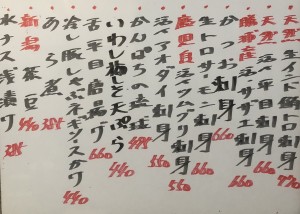 天然 生インド鮪トロ刺身 770
天然 活〆平目刺身 660
勝浦産 活サザエ刺身 660
かつお刺身 660
生トロサーモン刺身 660
鹿児島 活〆ツムブリ刺身 550
活〆アオダイ刺身 550
かんぱちの塩焼
いわし梅しそ天ぷら 440
舌平目唐揚げ 660
冷し豚しゃぶネギソースがけ 440
あら煮 384
新潟 茶豆 440
水ナス浅漬け 384